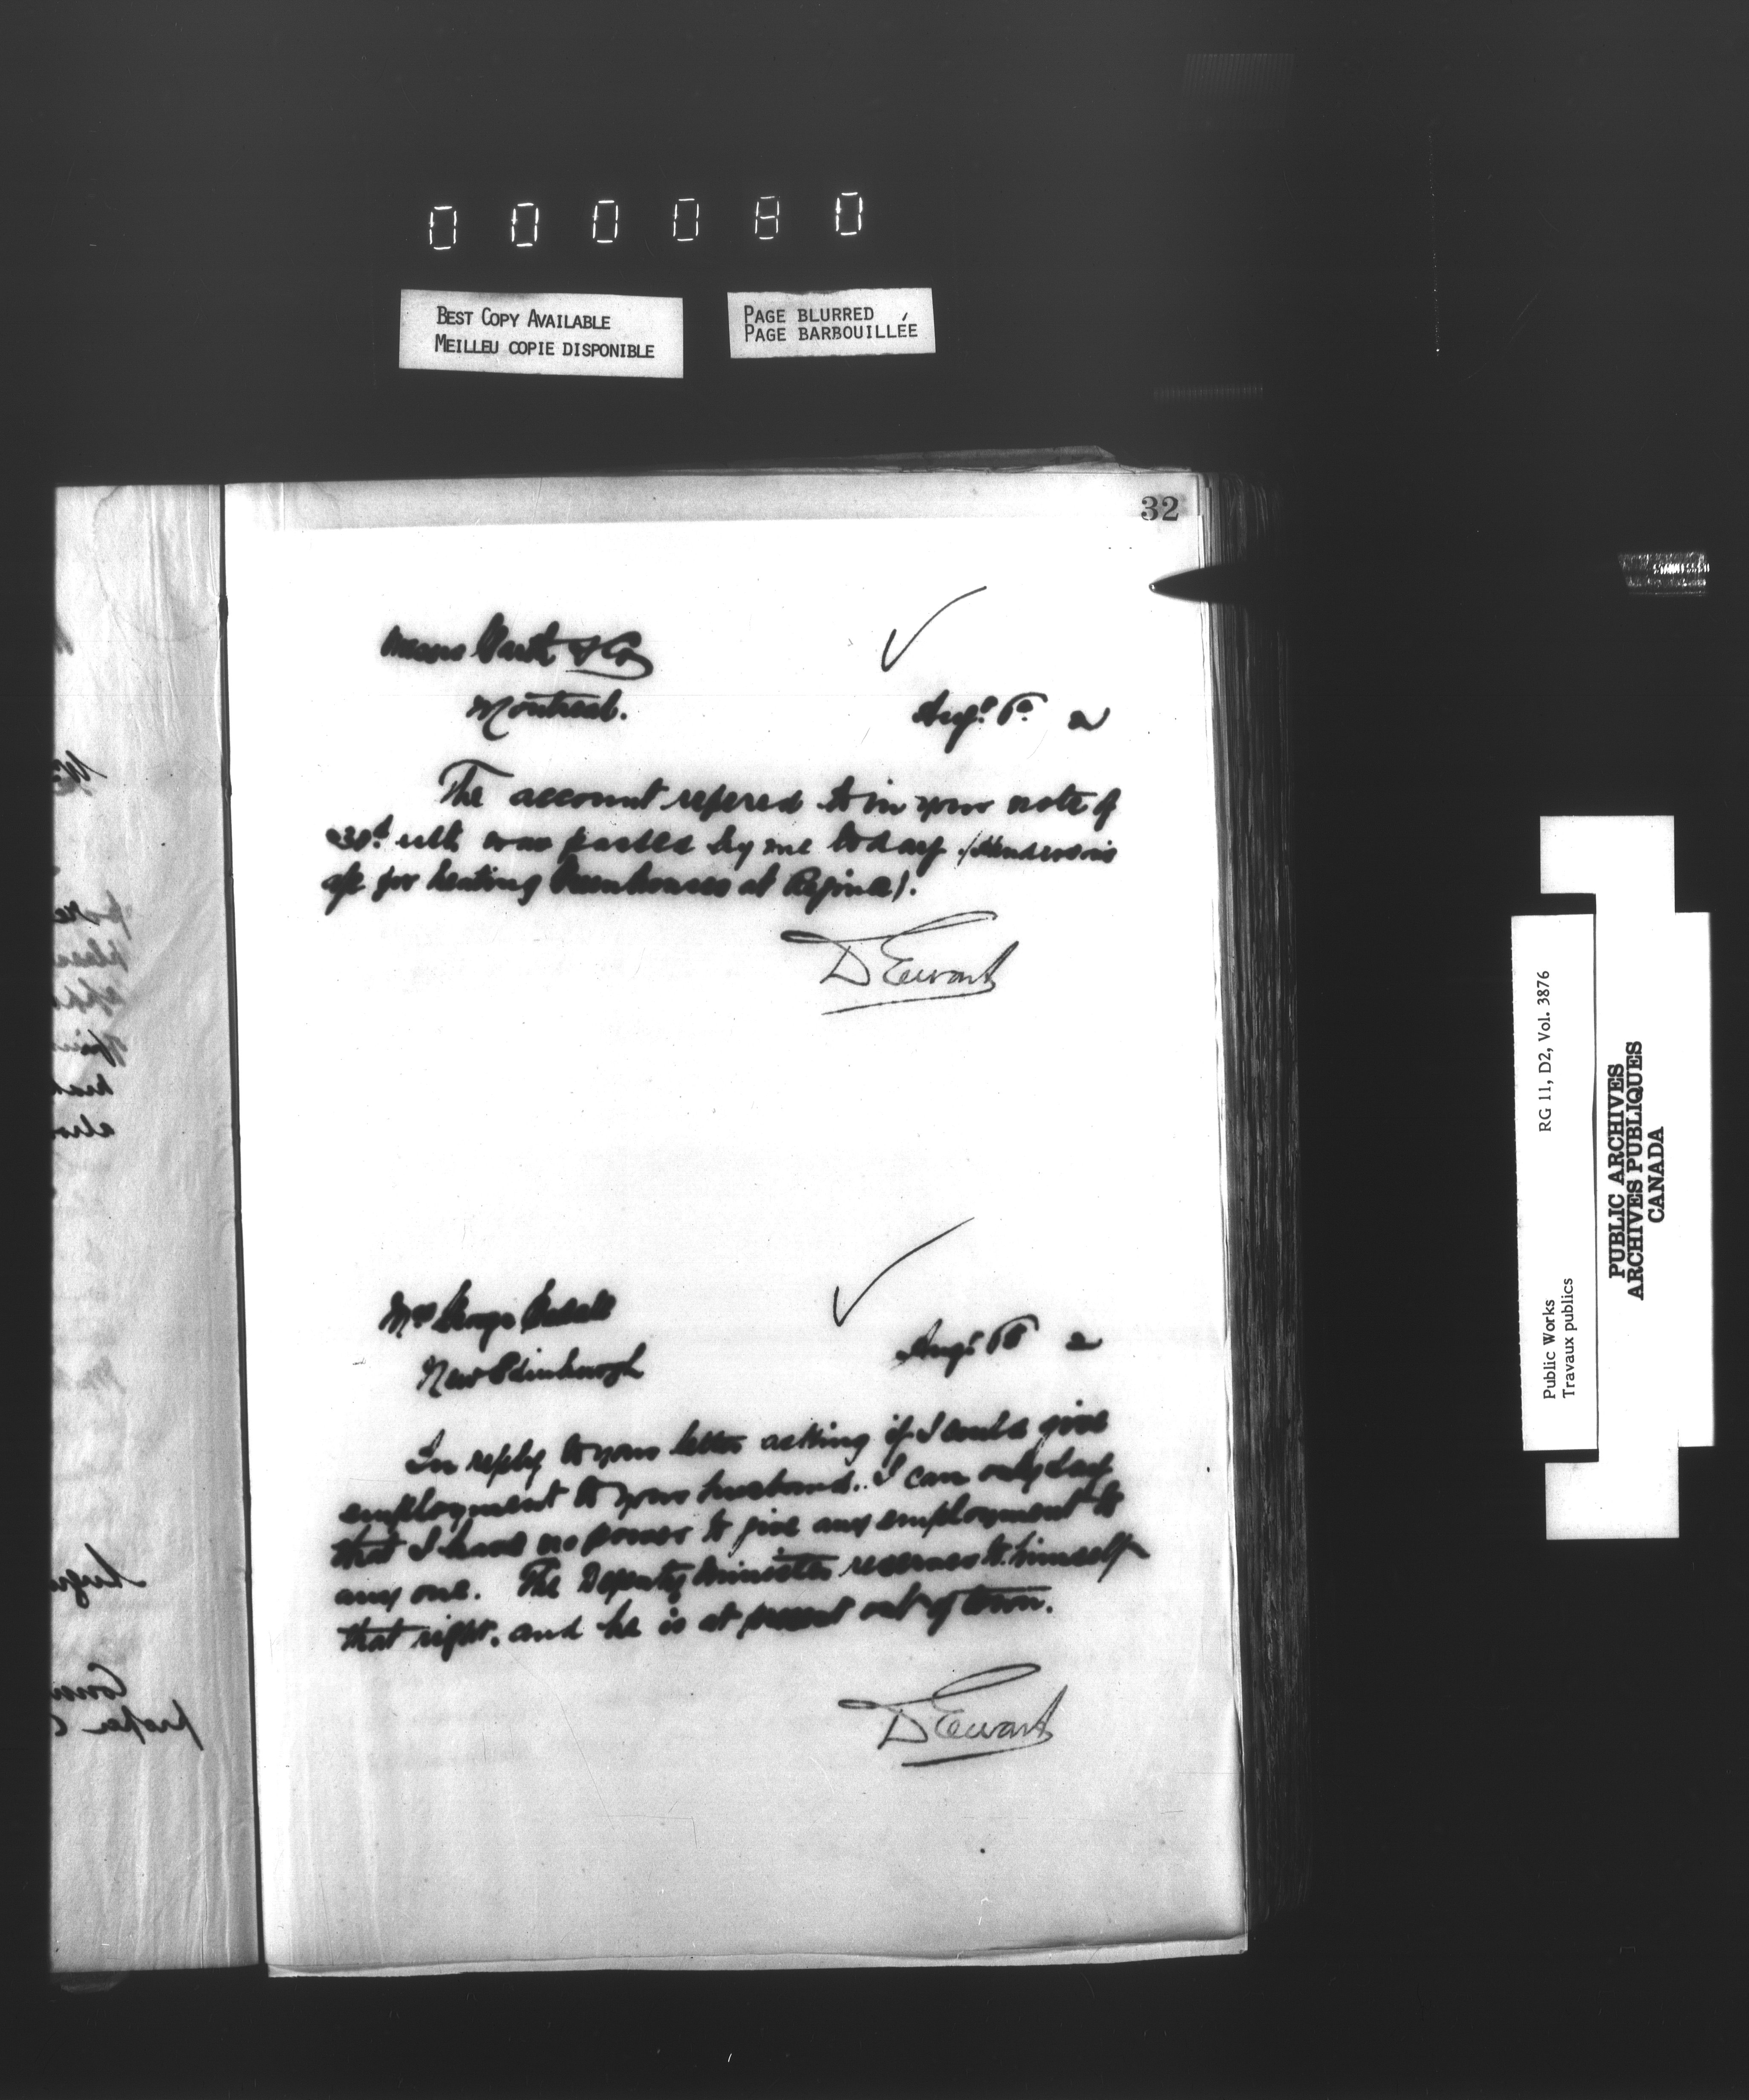 000080
BEST COPY AVAILABLE
MEILLEU COPIE DISPONIBLE
PAGE BLURRED
PAGE BARBOUILLÉE
32
Messrs Garth & Co
Montreal.
Augt. 6th. 2
The account refered to in your note of
30th ult was passed by me today. (Henderson's
a/c for heating Greenhouses at Regina).
D Ewart
Mrs George
New Edinburgh
Augt 6th 2
In reply to your letter asking if I could give
employment to your husband. I can only say
that I have no power to give any employment to
any one. The Deputy Minister reserves to himself
that right, and he is at present out of town.
D Ewart
Public Works
Travaux publics
RG 11, D2, Vol. 3876
PUBLIC ARCHIVES
ARCHIVES PUBLIQUES
CANADA